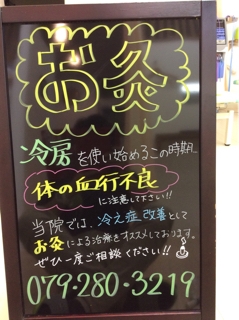 お灸
冷房を使い始めるこの時期、
体の血行不良
に注意して下さい!!
当院では、冷え症改善として
お灸による治療をオススメしております。
ぜひ一度ご相談ください!!
079-280-3219